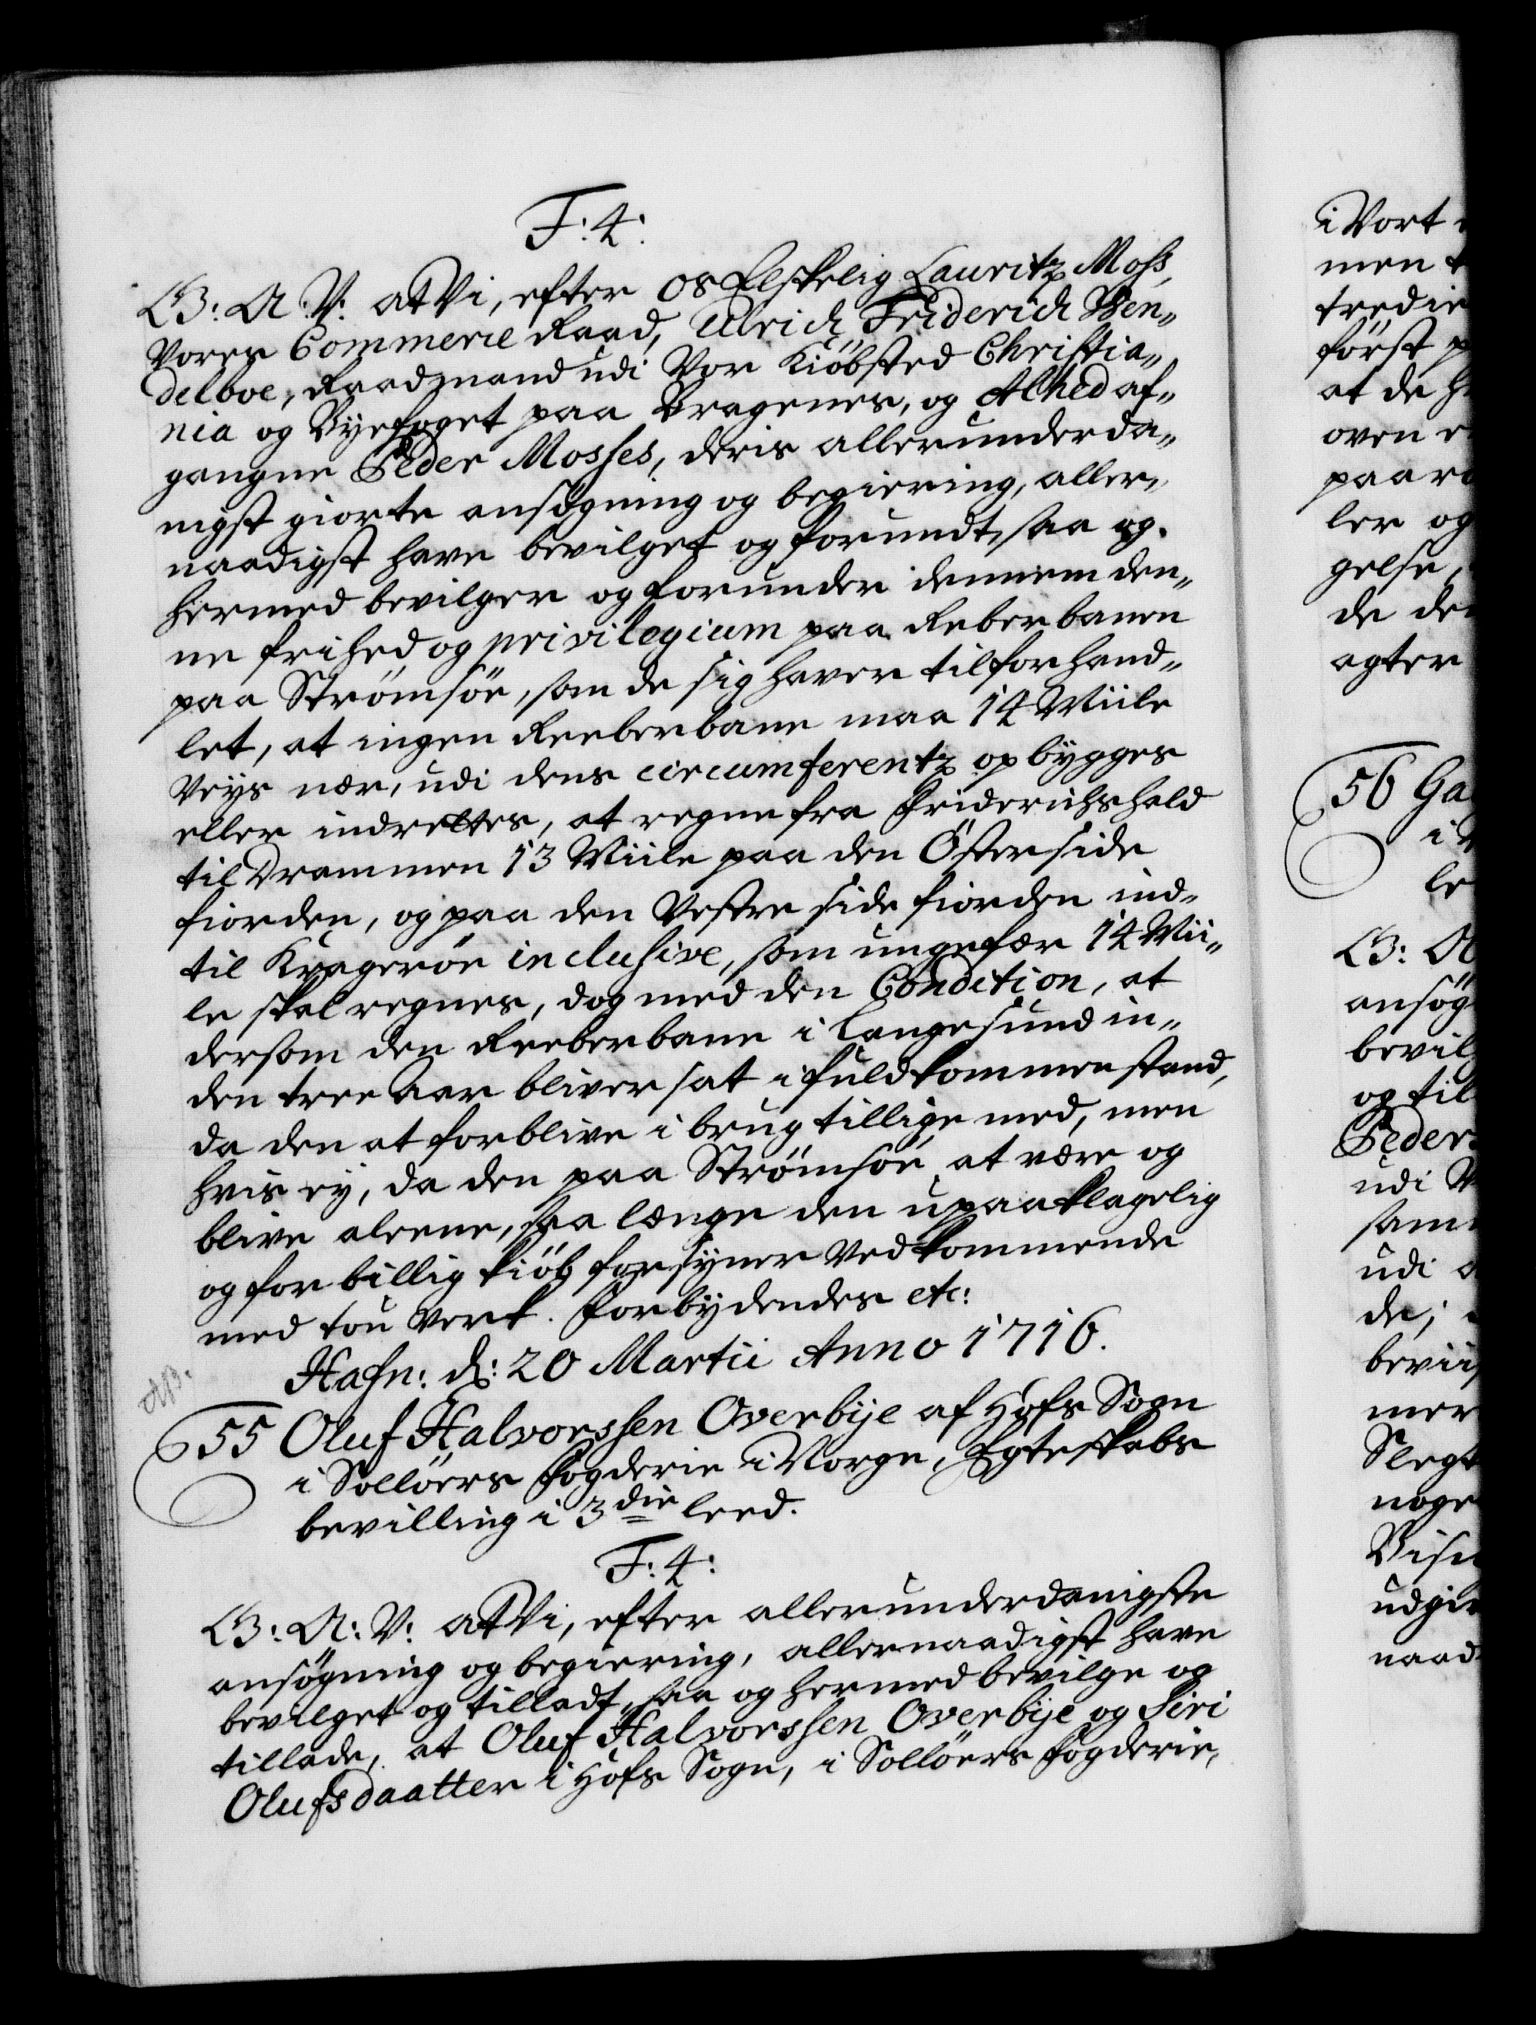 F: 4:
G: A: V: at Vi, efter os Elskelig Lauritz Moss,
Vores Commerce Raad, Ulrich Friderich Ben„
delboe, Raadmand udi Vor Kiöbsted Christia„
nia og Byefoget paa Bragenes, og Alhed af„
gangne Peder Mosses, deris allerunderda„
nigst giorte ansögning og begiering, aller„
naadigst have bevilget og forundt, saa og
hermed bevilger og forunder dennem den„
ne frihed og privilegium paa Reberbanen
paa Strömsöe, som de sig haver tilforhand„
let, at ingen Reeberbane maa 14 Miile
Veys nær, udi dens circumferentz opbygges
eller indrettes, at regne fra Friderichshald
til Drammen 13 Miile paa den Öster side
fiorden, og paa den Vestre side fiorden ind„
til Krageröe inclusive, som ungefær 14 Mii„
le skal regnes, dog med den Condition, at
dersom den Reeberbane i Langesund in„
den tree Aar bliver sat i fuldkommen stand,
da den at forblive i brug tillige med, men
hvis ey, da den paa Strömsöe at være og
blive aleene, saa længe den upaaklagelig
og for billig kiöb forsyner Vedkommende
med tou Verk. Forbydendes etc:
Hafn: d: 20 Martii Anno 1716.
55 Oluf Halvorssen Overbye af Hofs Sogn
i Sollöers Fogderie i Norge, Egteskabs
bevilling i 3die leed.
F: 4:
G: A: V: at Vi, efter allerunderdanigste
ansögning og begiering, allernaadigst have
bevilget og tilladt, saa og hermed bevilge og
tillade, at Oluf Halvorssen Overbye og Siri
Olufsdaatter i Hofs Sogn, i Sollöers Fogderie,
i Vort
men
tredie
först
at de
oven
paa
ler og
gelse,
de
agter
56
i
le
G: A
ansög
bevil
og til
Peder
udi
sam
udi
de;
bevii
mer
Slegt
noge
Bisp
udgiv
naad